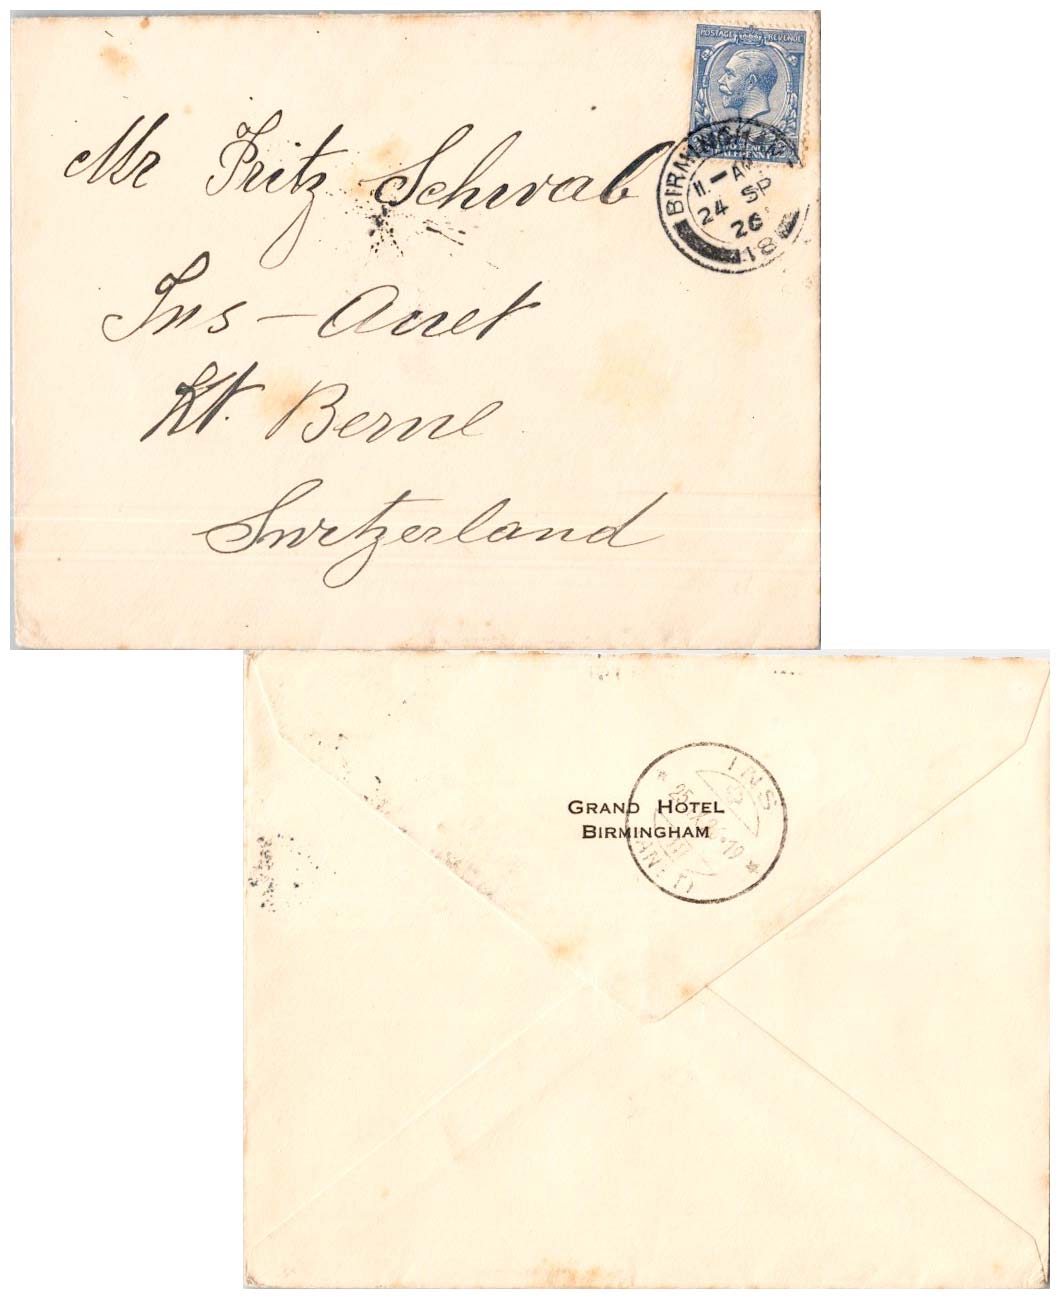 POSTAGE REVENUE
TWO PENCE
HALFPENNY
BIRMINGHAM
11 - AM
24 SP
26
18
Mr Fritz Schwab
Ins - Anet
Kt. Berne
Switzerland
GRAND HOTEL
BIRMINGHAM
INS
25